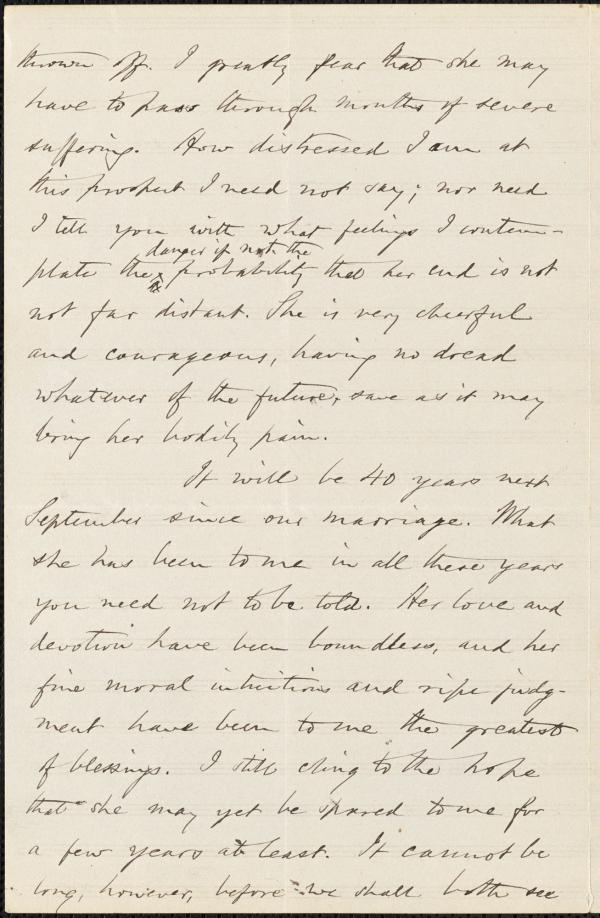 thrown off. I greatly fear that she may
have to pass through months of severe
suffering. How distressed I am at
this prospect I need not say; nor need
I tell you with what feelings I contem-
danger if not the
plate the probability that her end is not
not far distant. She is very cheerful
and courageous, having no dread
whatever of the future, save as it may
bring her bodily pain.
It will be 40 years next
September since our marriage. What
she has been to me in all these years
you need not to be told. Her love and
devotion have been boundless, and her
fine moral intuitions and ripe judg-
ment have been to me the greatest
of blessings. I still cling to the hope
that she may yet be spared to me for
a few years at least. It cannot be
long, however, before we shall both see